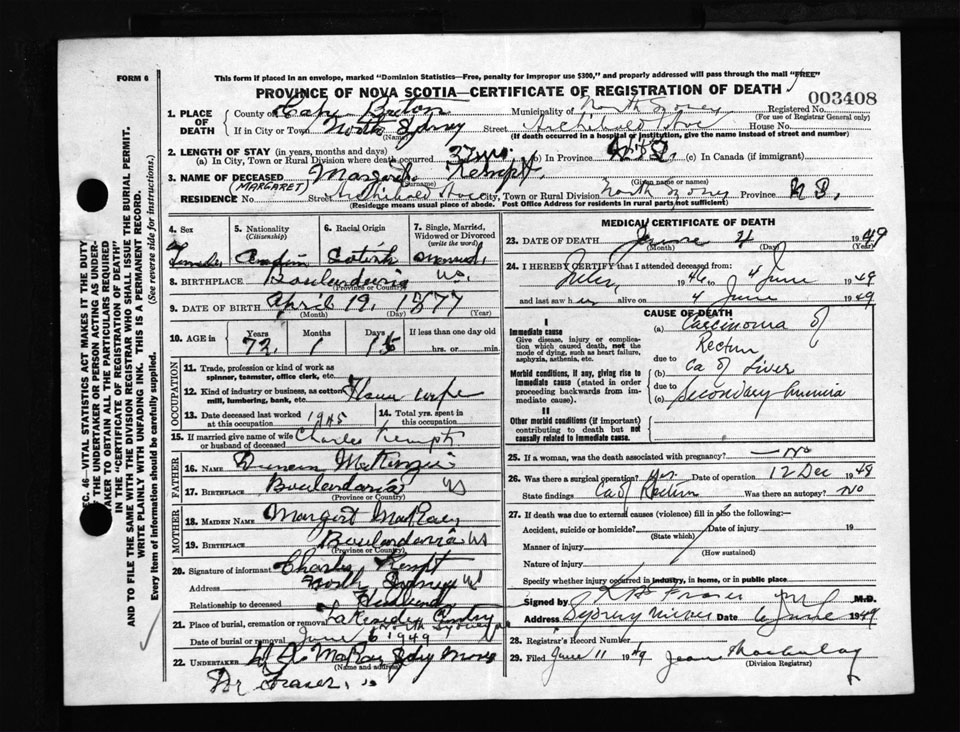 FORM 6
This form if placed in an envelope, marked "Dominion Statistics—Free, penalty for improper use $300," and properly addressed will pass through the mail "FREE"
PROVINCE OF NOVA SCOTIA—CERTIFICATE OF REGISTRATION OF DEATH
003408
1. PLACE OF DEATH
County of Cape Breton Municipality of North Sydney Registered No.
(For use of Registrar General only)
If in City or Town North Sydney Street House No.
(Name) (If death occurred in a hospital or institution, give the name instead of street and number)
2. LENGTH OF STAY (in years, months and days)
(a) In City, Town or Rural Division where death occurred (b) In Province (c) In Canada (if immigrant)
3. NAME OF DECEASED Kempt
(MARGARET) (Surname) (Given name or names)
RESIDENCE No. Street City, Town or Rural Division North Sydney Province
(Residence means usual place of abode. Post Office Address for residents in rural parts not sufficient)
4. Sex
Female
5. Nationality
(Citizenship)
6. Racial Origin
7. Single, Married, Widowed or Divorced
(write the word)
8. BIRTHPLACE Boulardarie
(Province or Country)
9. DATE OF BIRTH April 19, 1877
(Month) (Day) (Year)
10. AGE in
Years Months Days If less than one day old
72 1 15 hrs. or min.
OCCUPATION
11. Trade, profession or kind of work as
spinner, teamster, office clerk, etc.
12. Kind of industry or business, as cotton
mill, lumbering, bank, etc. House wife
13. Date deceased last worked
at this occupation 1945
14. Total yrs. spent in
this occupation
15. If married give name of wife
or husband of deceased Charles Kempt
FATHER
16. Name Duncan McKenzie
17. Birthplace Boulardarie
(Province or Country)
MOTHER
18. Maiden Name Margert MacRae
19. Birthplace Boulardarie
(Province or Country)
20. Signature of informant Charles Kempt
Address North Sydney
Relationship to deceased Husband
21. Place of burial, cremation or removal Lakeside
Date of burial or removal June 6 1949
22. UNDERTAKER
(Name and address)
Dr Fraser.
MEDICAL CERTIFICATE OF DEATH
23. DATE OF DEATH June 4 1949
(Month) (Day) (Year)
24. I HEREBY CERTIFY that I attended deceased from:
1946 to 4 June 1949
and last saw her alive on 4 June 1949
CAUSE OF DEATH
I
Immediate cause
Give disease, injury or complication which caused death, not the mode of dying, such as heart failure, asphyxia, asthenia, etc.
(a) Carcinoma of
Rectum
due to
Morbid conditions, if any, giving rise to immediate cause (stated in order proceeding backwards from immediate cause).
(b) Ca of Liver
due to
(c) Secondary
II
Other morbid conditions (if important) contributing to death but not causally related to immediate cause.
25. If a woman, was the death associated with pregnancy? — No
26. Was there a surgical operation? Yes Date of operation 12 Dec 1948
State findings Ca of Rectum Was there an autopsy? No
27. If death was due to external causes (violence) fill in also the following:—
Accident, suicide or homicide? Date of injury 19
(State which)
Manner of injury
(How sustained)
Nature of injury
Specify whether injury occurred in industry, in home, or in public place
Signed by Fraser M.D.
Address Sydney Mines Date 6 June 1949
28. Registrar's Record Number
29. Filed June 11 1949 Jean
(Division Registrar)
SEC. 46—VITAL STATISTICS ACT MAKES IT THE DUTY
OF THE UNDERTAKER OR PERSON ACTING AS UNDERTAKER TO OBTAIN ALL THE PARTICULARS REQUIRED
IN THE "CERTIFICATE OF REGISTRATION OF DEATH"
AND TO FILE THE SAME WITH THE DIVISION REGISTRAR WHO SHALL ISSUE THE BURIAL PERMIT.
WRITE PLAINLY WITH UNFADING INK. THIS IS A PERMANENT RECORD.
Every item of information should be carefully supplied. (See reverse side for instructions.)